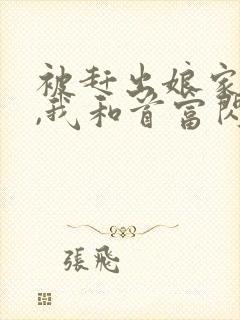 被赶出娘家
,我和首富闪
張飛